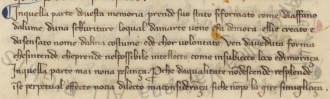 In quella parte dovesta memoria prende suo stato sì formato come diaffano
da lume duna schuritate laqual damarte vene e fa demora Elli e creato e
da sensato nome dalma costume ed chor volontate Ven da veduta forma
che sintende che prende nel possibile intelletto come in subiecto loco e dimoranza
In quella parte mai non a pesanza Perche da qualitate non descende resplende
in se perpetual effecto non a dilecto ma consideranza si che non po la gire simiglianza